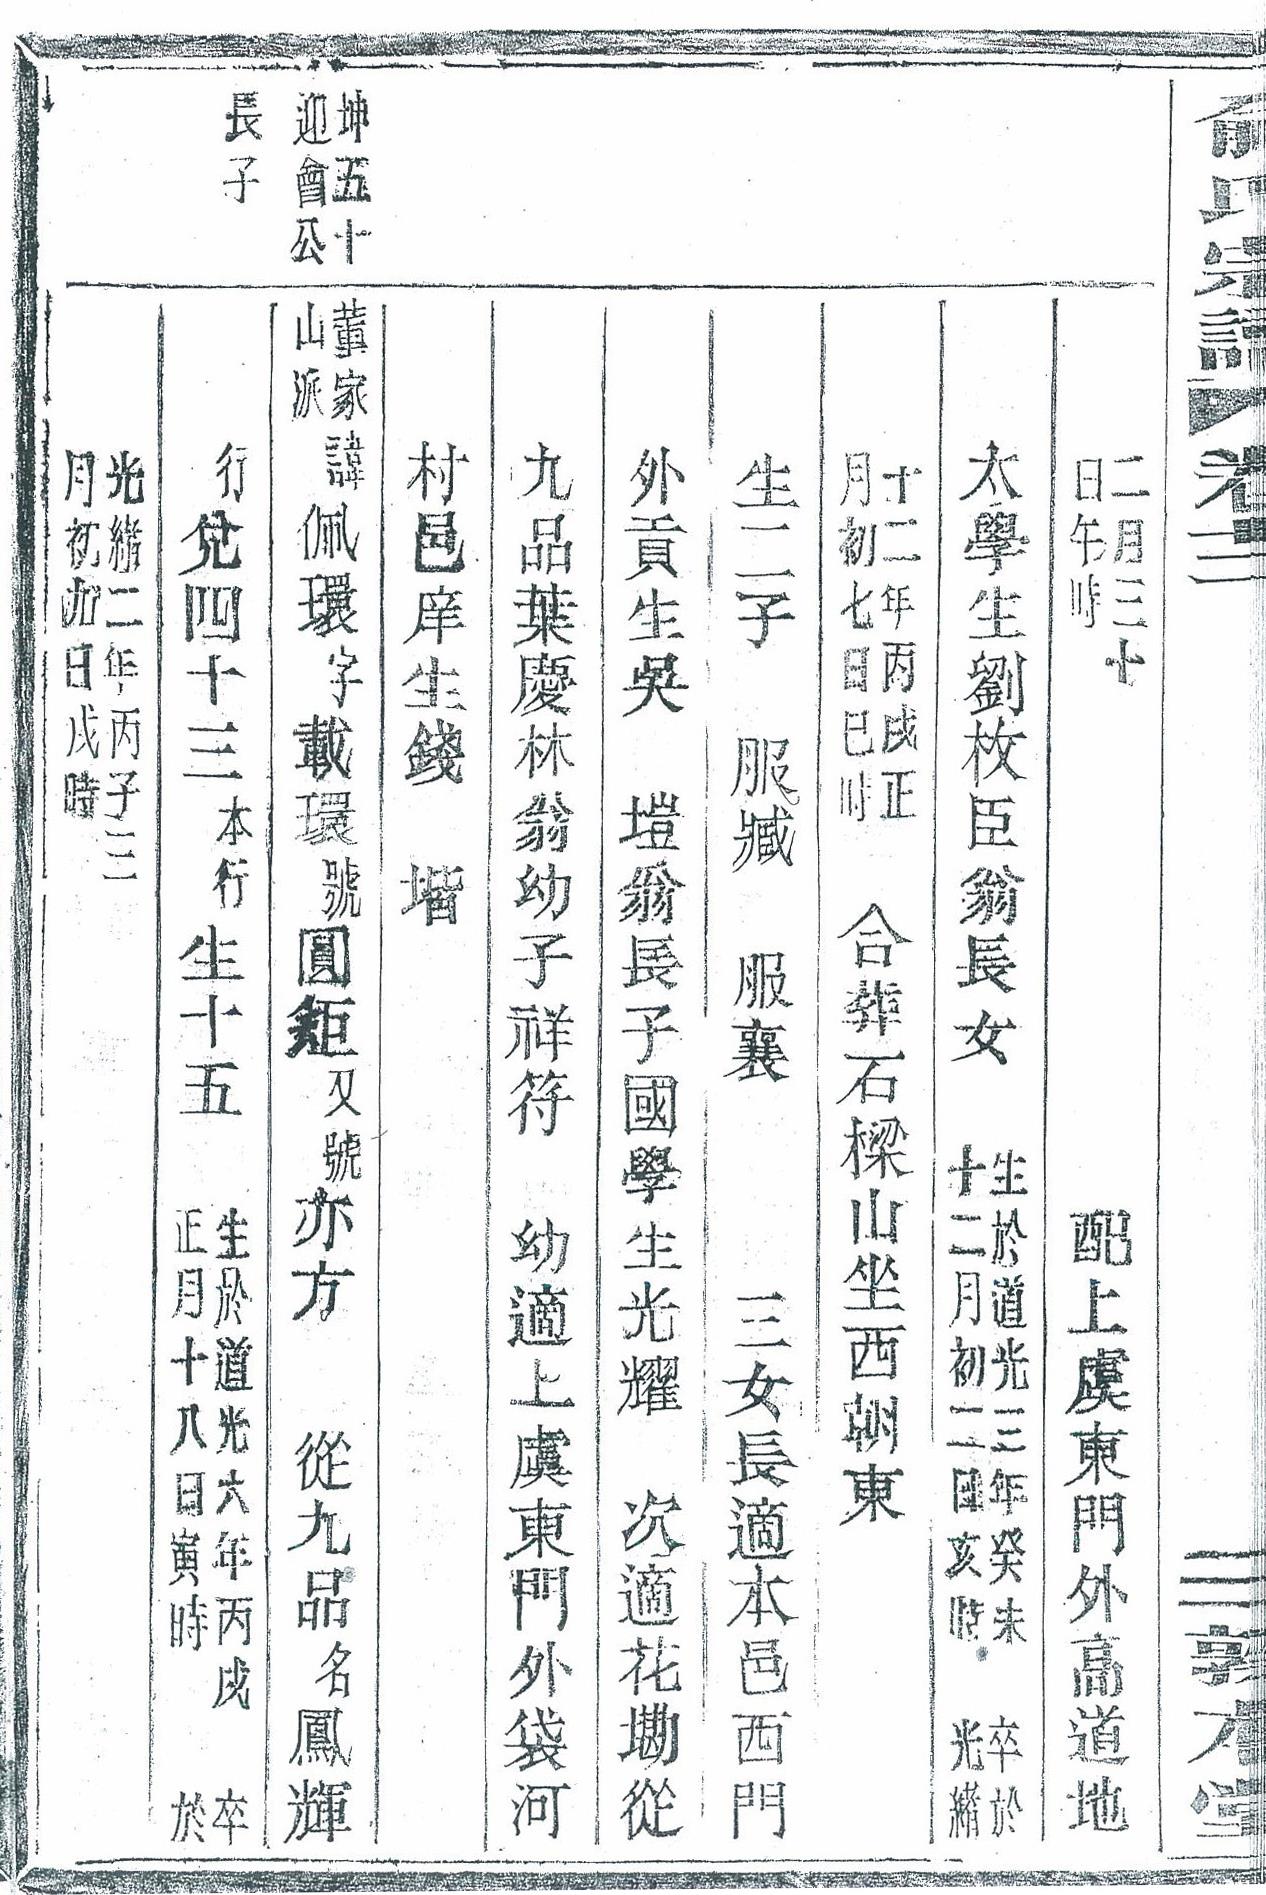 俞氏宗譜 卷二 三 敦本堂
二月三十日午時 配上虞東門外高道地
太學生劉枚臣翁長女 生於道光三年癸未十二月初二日亥時 卒於光緒
十二年丙戌正月初七日巳時 合葬石樑山坐西朝東
生二子 服臧 服襄 三女長適本邑西門
外貢生吳 塏翁長子國學生光耀 次適花勘從
九品葉慶林翁幼子祥符 幼適上虞東門外袋河
村邑庠生錢 堦
坤五十
迎會公
長子
董家山派 諱佩環字載環號圓鉅又號亦方 從九品名鳳輝
行兌四十三本行生十五 生於道光六年丙戌正月十八日寅時 卒於
光緒二年丙子三月初九日戌時